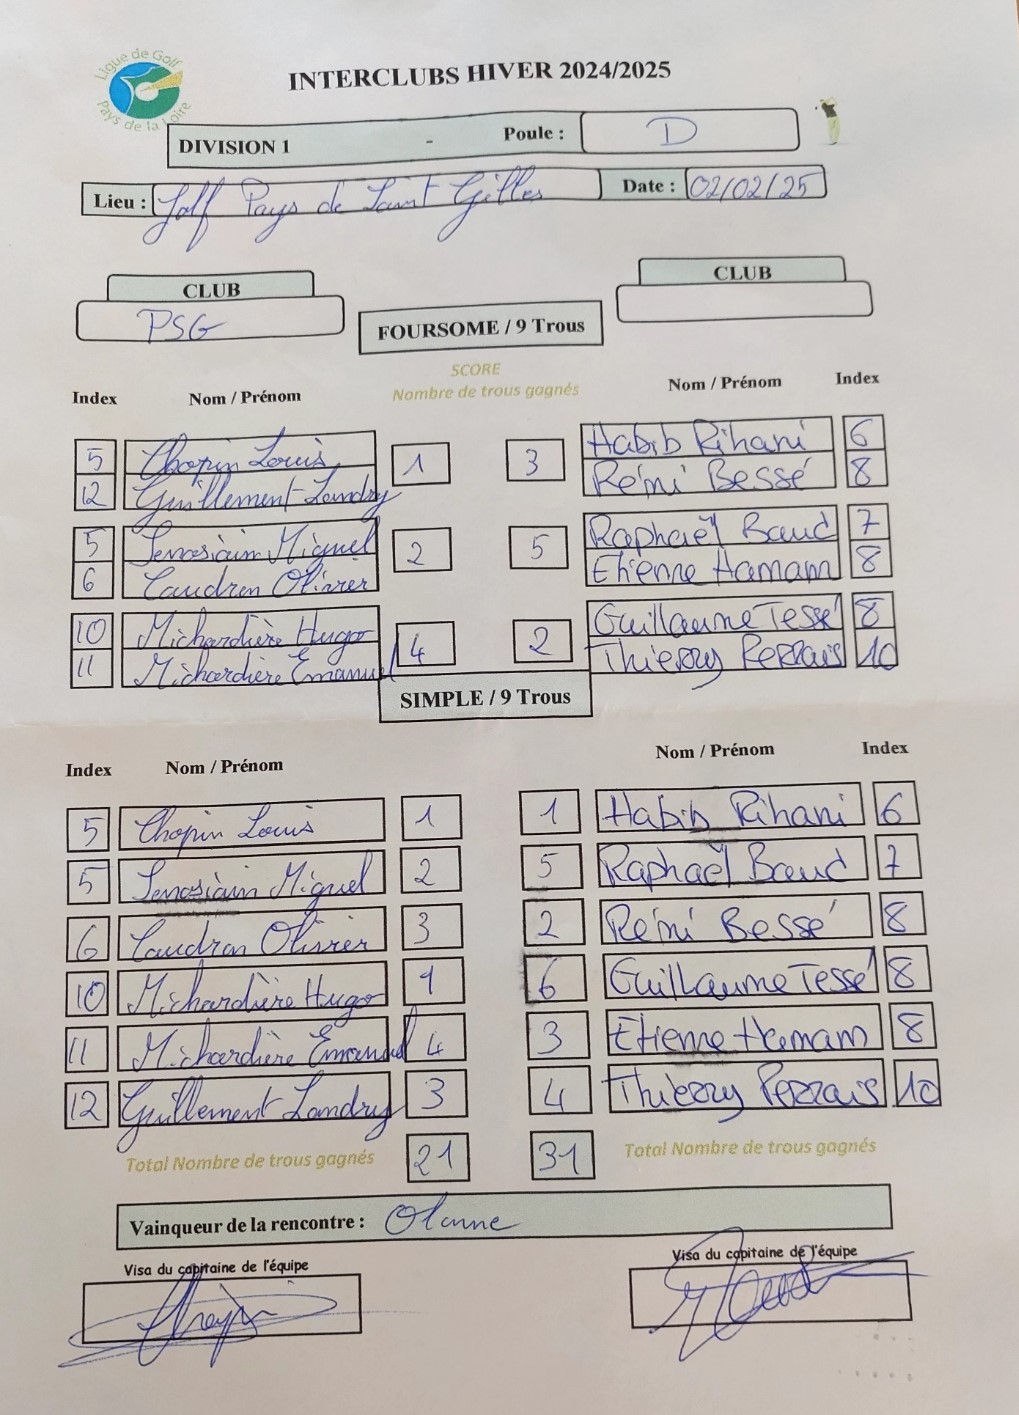 Ligue de Golf
Pays de la Loire
INTERCLUBS HIVER 2024/2025
DIVISION 1 - Poule : D
Lieu : Golf Pays de Saint Gilles Date : 02/02/25
CLUB CLUB
PSG
FOURSOME / 9 Trous
SCORE
Index Nom / Prénom Nombre de trous gagnés Nom / Prénom Index
5 Chopin Louis 1 3 Habib Rihani 6
12 Guillement Landry Rémi Bessé 8
5 Senosiain Miguel 2 5 Raphaël Baud 7
6 Caudron Olivier Etienne Hamam 8
10 Michardière Hugo 4 2 Guillaume Tessé 8
11 Michardière Emanuel Thierry Perrais 10
SIMPLE / 9 Trous
Index Nom / Prénom Nom / Prénom Index
5 Chopin Louis 1 1 Habib Rihani 6
5 Senosiain Miguel 2 5 Raphaël Baud 7
6 Caudron Olivier 3 2 Rémi Bessé 8
10 Michardière Hugo 1 6 Guillaume Tessé 8
11 Michardière Emanuel 4 3 Etienne Hamam 8
12 Guillement Landry 3 4 Thierry Perrais 10
Total Nombre de trous gagnés 21 31 Total Nombre de trous gagnés
Vainqueur de la rencontre : Olonne
Visa du capitaine de l'équipe Visa du capitaine de l'équipe